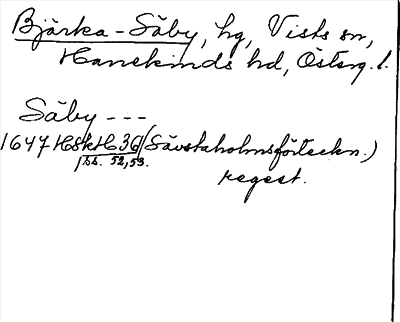 Bjärka-Säby, hg, Vists sn,
Hanekinds hd, Österg. l.
Säby ---
1647 HSH 36 (Sävstaholmsförteckn.)
ss. 52, 53.
regest.